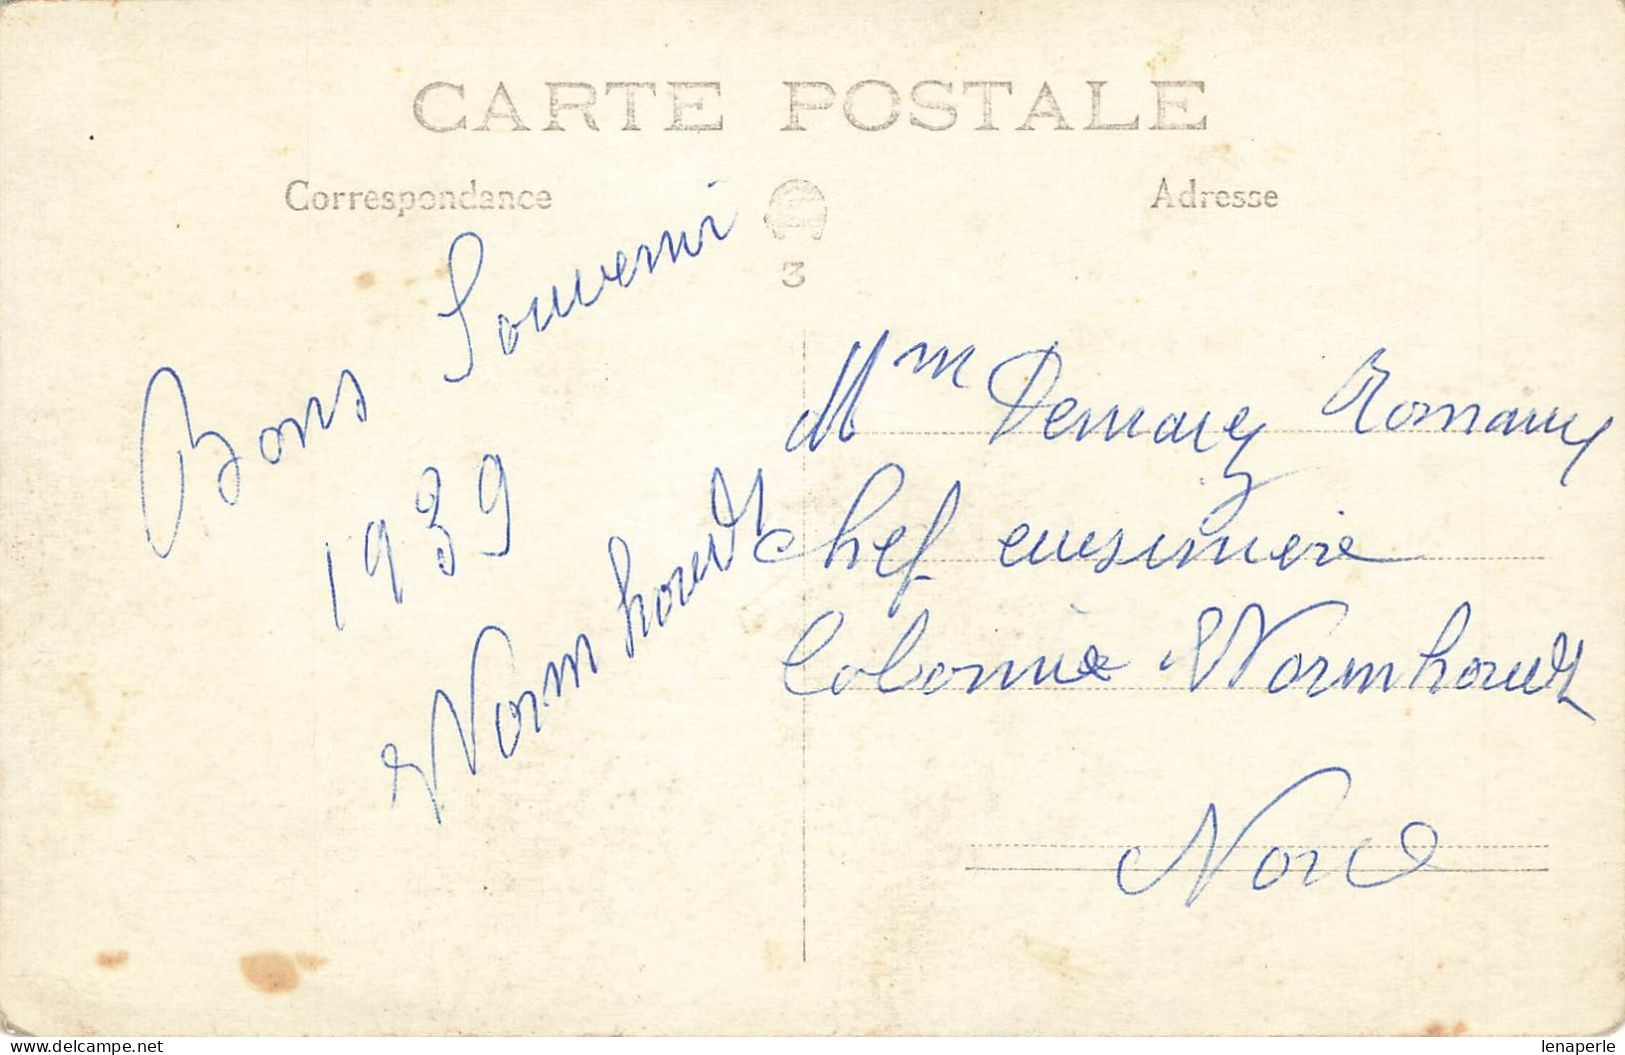 CARTE POSTALE
Correspondance
Adresse
3
Bons Souvenir
1939
Wormhoudt
Mme Demarey Romany
chef cuisinière
Colonie Wormhoudt
Nord
www.delcampe.net
lenaperle